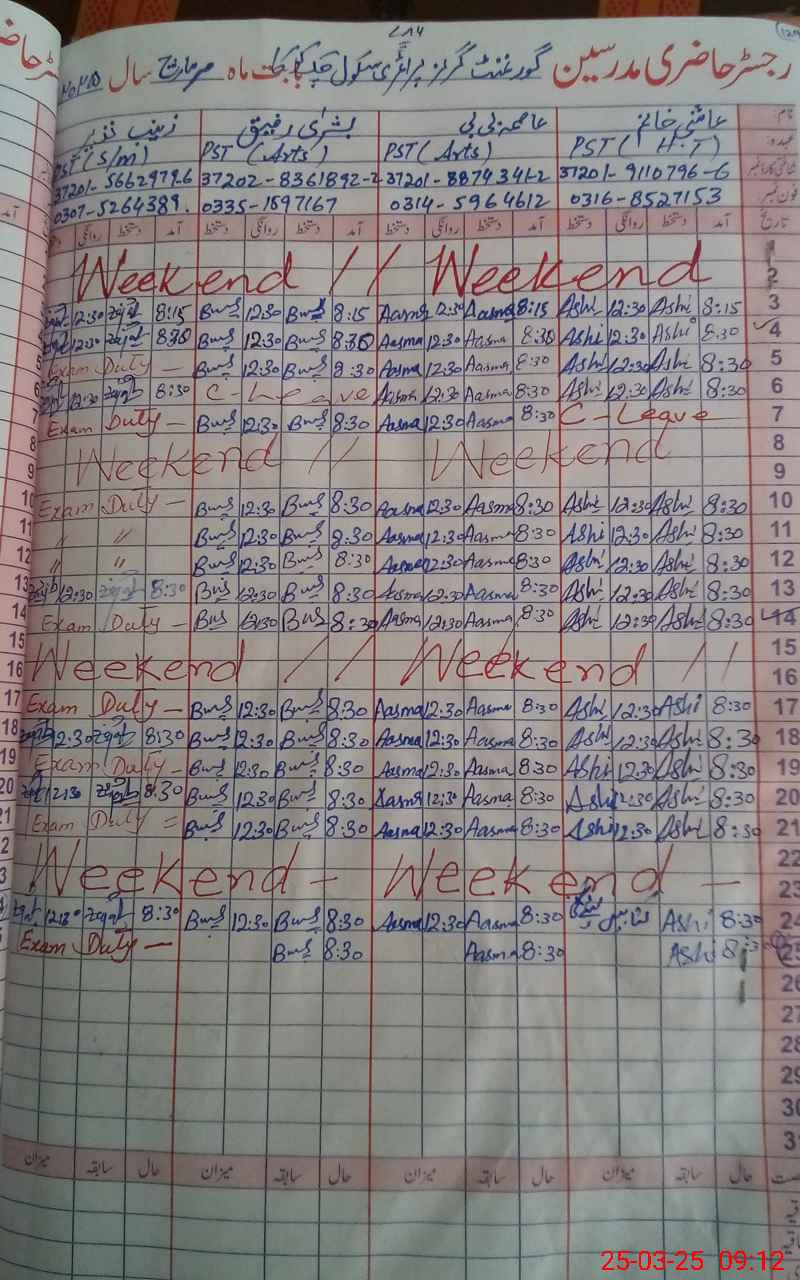 رجسٹر حاضری مدرسین گورنمنٹ گرلز پرائمری سکول ماہ مارچ سال
نام عاشی خانم عاصمہ بی بی بشریٰ رفیق زینب نذیر
عہدہ PST ( H.T ) PST ( Arts ) PST (Arts) PST (S/m)
37201-9110796-6 37201-8874341-2 37202-8361892-2 37201-5662979-6
فون نمبر 0316-8527153 0314-5964612 0335-1597167 0307-5264389.
تاریخ آمد دستخط روانگی دستخط آمد دستخط روانگی دستخط آمد دستخط روانگی دستخط آمد دستخط روانگی
Weekend // Weekend
2
12:30 8:15 12:30 8:15 Aasma 12:30 Aasma 8:15 Ashi 12:30 Ashi 8:15 3
12:30 8:30 12:30 8:30 Aasma 12:30 Aasma 8:30 Ashi 12:30 Ashi 8:30 4
Exam Duty – 12:30 8:30 Aasma 12:30 Aasma 8:30 Ashi 12:30 Ashi 8:30 5
12:30 8:30 C-Leave Aasma 12:30 Aasma 8:30 Ashi 12:30 Ashi 8:30 6
Exam Duty – 12:30 8:30 Aasma 12:30 Aasma 8:30 C-Leave 7
Weekend // Weekend 8
9
Exam Duty – 12:30 8:30 Aasma 12:30 Aasma 8:30 Ashi 12:30 Ashi 8:30 10
" " 12:30 8:30 Aasma 12:30 Aasma 8:30 Ashi 12:30 Ashi 8:30 11
" " 12:30 8:30 Aasma 12:30 Aasma 8:30 Ashi 12:30 Ashi 8:30 12
12:30 8:30 12:30 8:30 Aasma 12:30 Aasma 8:30 Ashi 12:30 Ashi 8:30 13
Exam Duty – 12:30 8:30 Aasma 12:30 Aasma 8:30 Ashi 12:30 Ashi 8:30 14
15
Weekend // Weekend // 16
Exam Duty – 12:30 8:30 Aasma 12:30 Aasma 8:30 Ashi 12:30 Ashi 8:30 17
12:30 8:30 12:30 8:30 Aasma 12:30 Aasma 8:30 Ashi 12:30 Ashi 8:30 18
Exam Duty – 12:30 8:30 Aasma 12:30 Aasma 8:30 Ashi 12:30 Ashi 8:30 19
12:30 8:30 12:30 8:30 Aasma 12:30 Aasma 8:30 Ashi 12:30 Ashi 8:30 20
Exam Duty = 12:30 8:30 Aasma 12:30 Aasma 8:30 Ashi 12:30 Ashi 8:30 21
22
Weekend – Weekend – 23
12:30 8:30 12:30 8:30 Aasma 12:30 Aasma 8:30 Ashi 8:30 24
Exam Duty – 8:30 Aasma 8:30 Ashi 8:30 25
26
27
28
29
30
31
حال سابقہ میزان حال سابقہ میزان حال سابقہ میزان حال سابقہ میزان
25-03-25 09:12